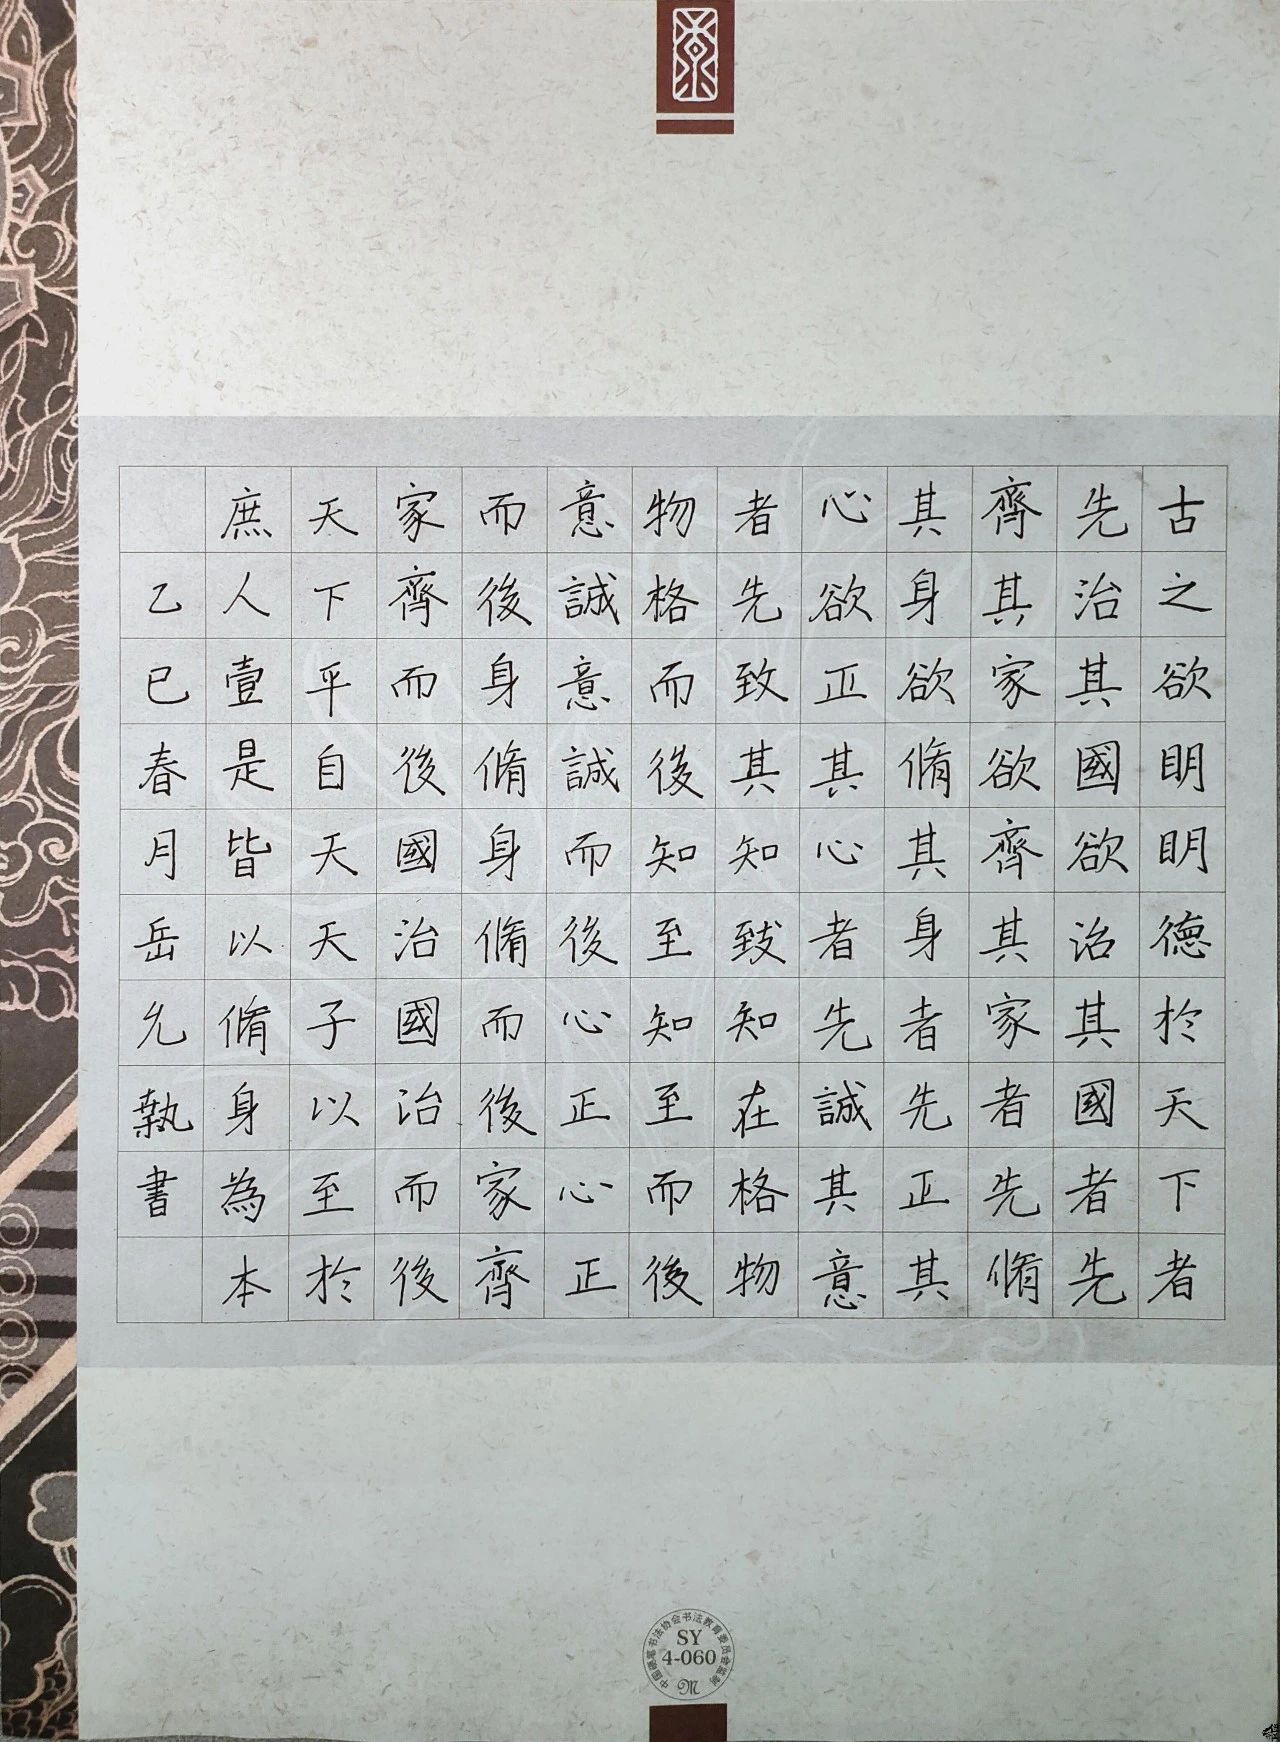 古之欲明明德於天下者
先治其國欲治其國者先
齊其家欲齊其家者先脩
其身欲脩其身者先正其
心欲正其心者先誠其意
者先致其知致知在格物
物格而後知至知至而後
意誠意誠而後心正心正
而後身脩身脩而後家齊
家齊而後國治國治而後
天下平自天天子以至於
庶人壹是皆以脩身為本
乙巳春月岳允執書
中国硬笔书法协会书法教育委员会监制
SY
4-060
M